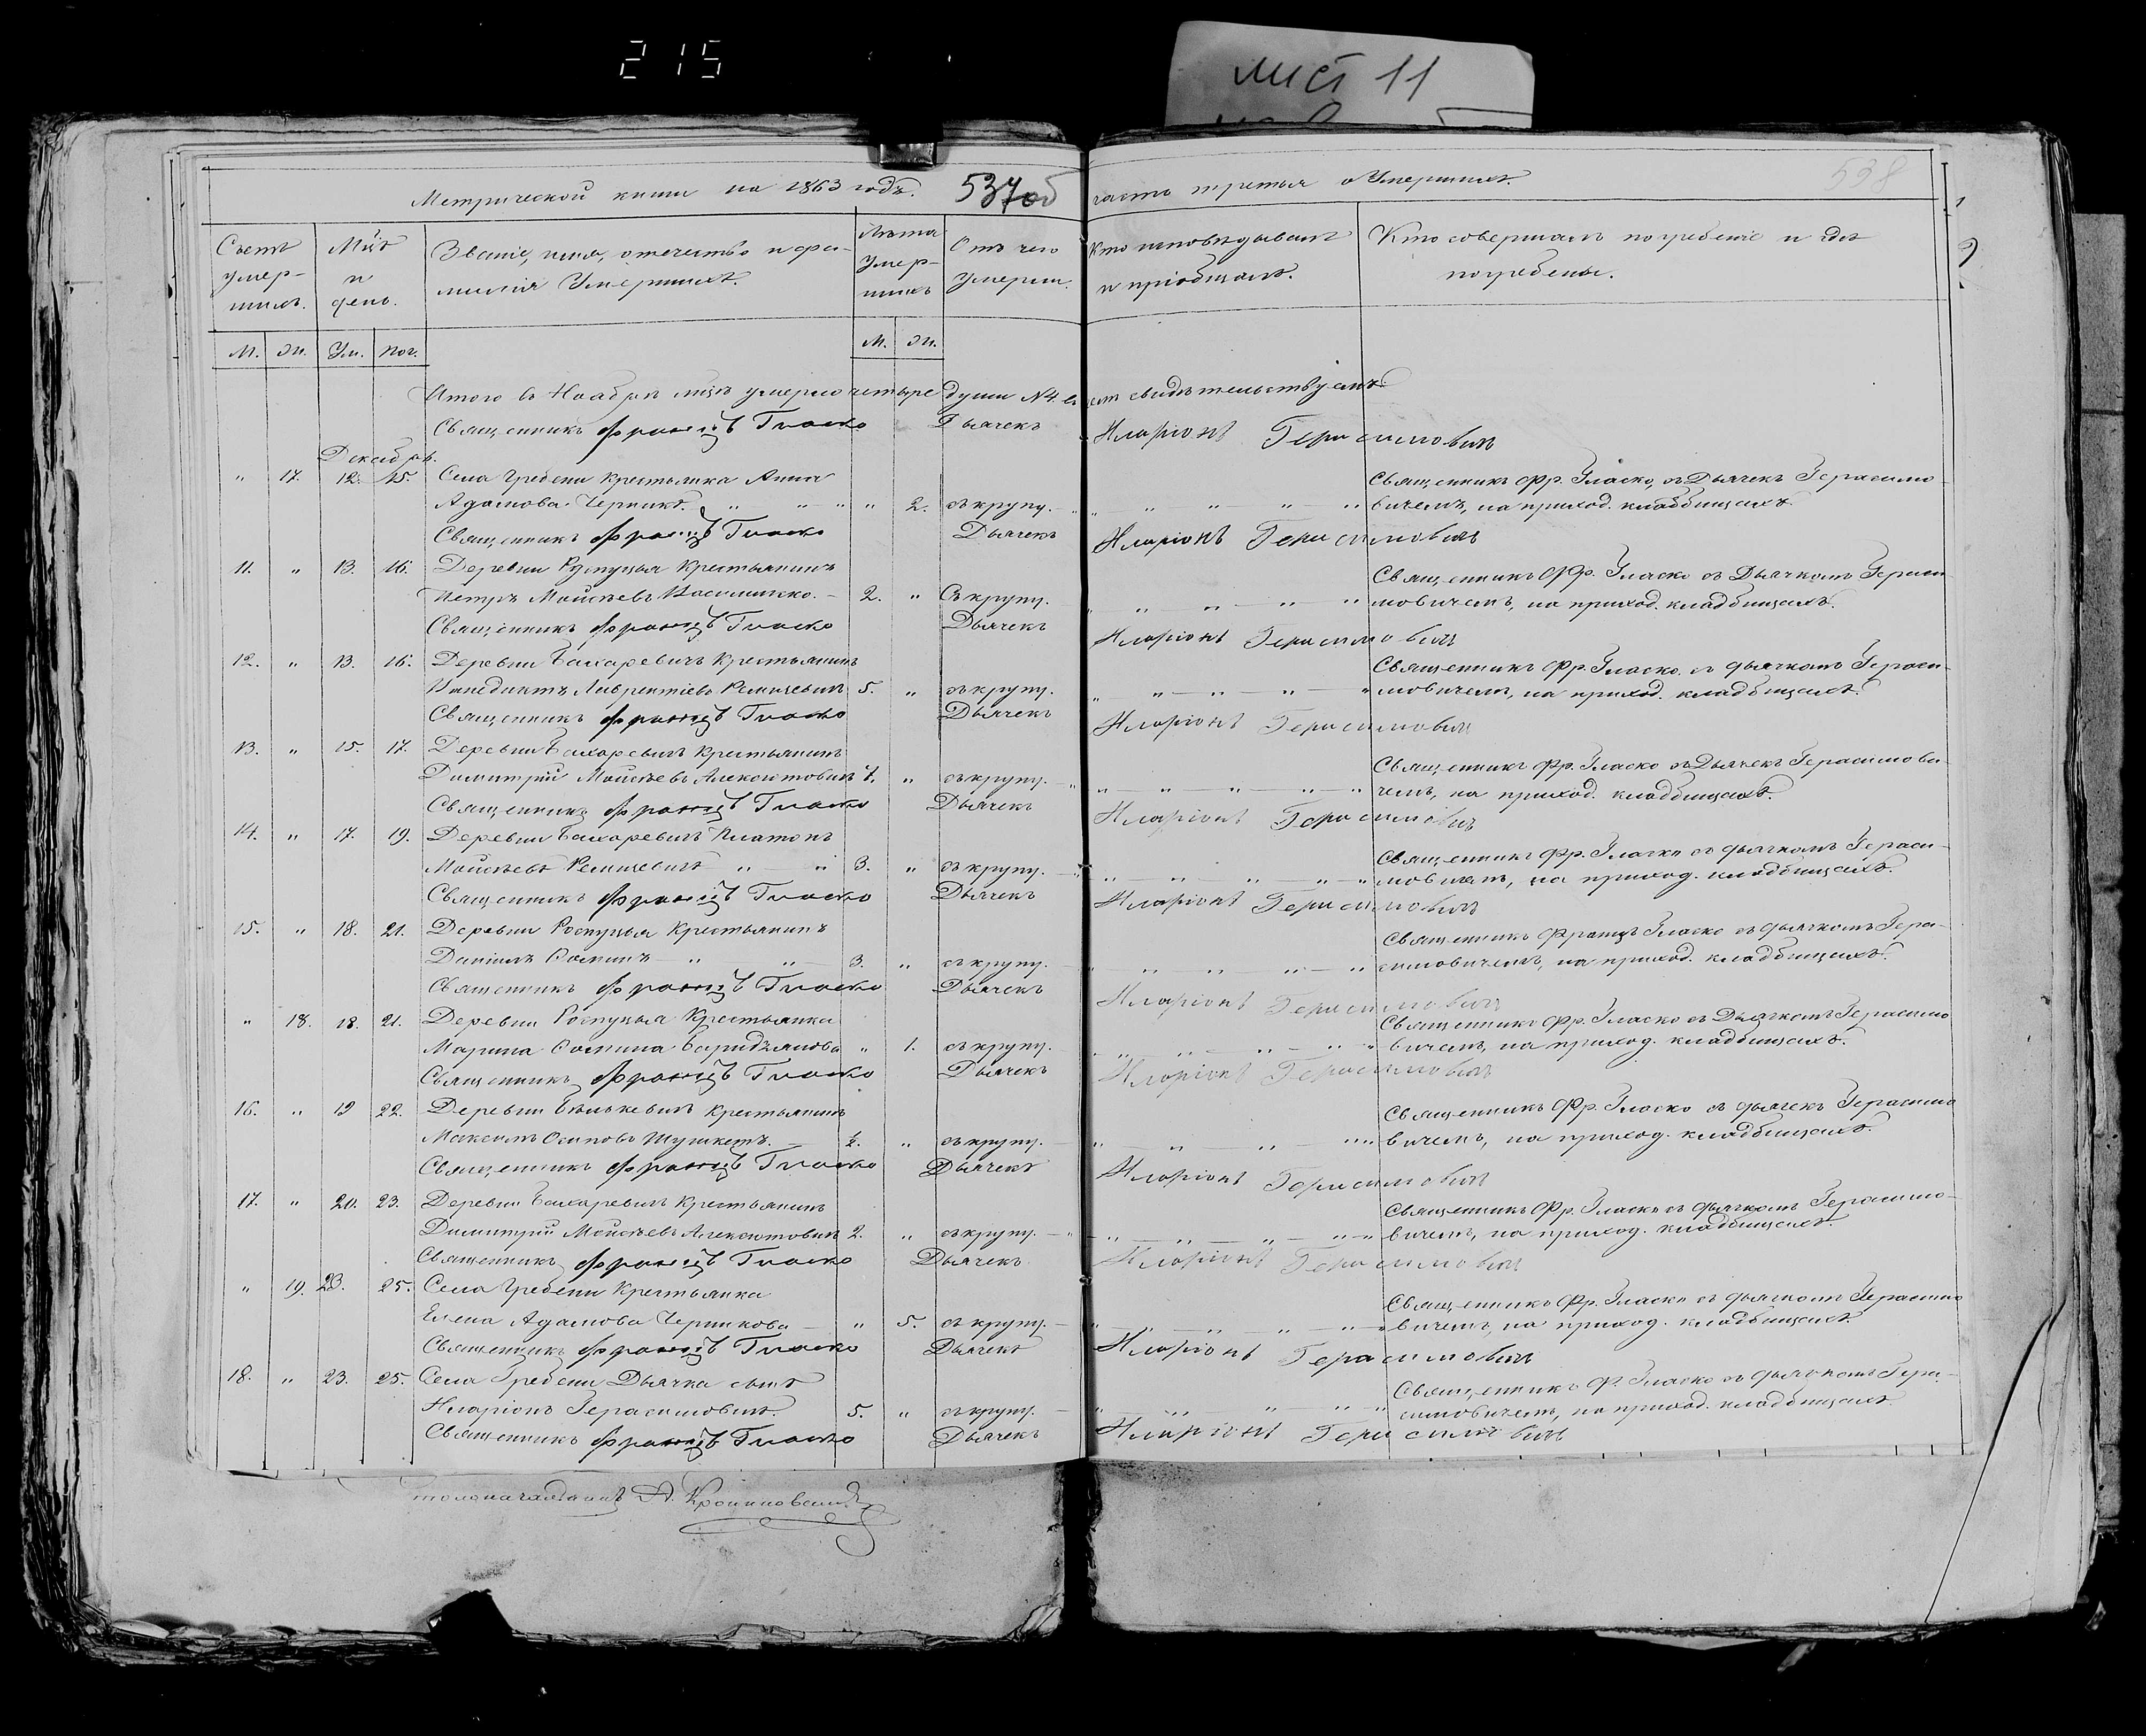 215
лист 11
Метрической книги на 1863 годъ.
537об
часть третья о Умершихъ.
538
Счетъ умер-шихъ.
Мцъ и день.
Званіе, имя, отечество и фа-
милія Умершихъ.
Лѣта умер-шихъ
Отъ чего умерли.
Кто исповѣдывалъ
и пріобщалъ.
Кто совершалъ погребеніе и гдѣ
погребены.
М. Ж. Ум. Пог. М. Ж.
Итого въ Ноябрѣ мцѣ умерло четыре души №4. въ чемъ свидѣтельствуемъ
Священникъ Францъ Гласко Дьячекъ Иларіонъ Герасимовичъ
Декабрь.
" 17. 12. 15. Села Гребени Крестьянка Анна Священникъ Фр. Гласко, съ Дьячек Герасимо-
Адамова Черникъ. " " " " 2. съ крупу. " " " " вичемъ, на приход. кладбищахъ.
Священникъ Францъ Гласко Дьячекъ Иларіонъ Герасимовичъ
11. " 13. 16. Деревни Крестьянинъ Священникъ Фр. Гласко съ Дьячкомъ Гераси-
Петръ Мойсѣевъ 2. " Съ крупу. " " " " " мовичемъ, на приход. кладбищахъ.
Священникъ Францъ Гласко Дьячекъ Иларіонъ Герасимовичъ
12. " 13. 16. Деревни Бахаревичъ Крестьянинъ Священникъ Фр. Гласко съ дьячкомъ Гераси-
Лаврентіевъ 5. " съ крупу. " " " " " мовичемъ, на приход. кладбищахъ.
Священникъ Францъ Гласко Дьячекъ Иларіонъ Герасимовичъ
13. " 15. 17. Деревни Бахаревичъ Крестьянинъ Священникъ Фр. Гласко съ Дьячек Герасимови-
Димитрій Мойсѣевъ Алексютовичъ " съ крупу. " " " " " чемъ, на приход. кладбищахъ.
Священникъ Францъ Гласко Дьячекъ Иларіонъ Герасимовичъ
14. " 17. 19. Деревни Бахаревичъ Платонъ Священникъ Фр. Гласко съ дьячкомъ Гераси-
Мойсѣевъ " " 3. " съ крупу. " " " " " мовичемъ, на приход. кладбищахъ.
Священникъ Францъ Гласко Дьячекъ Иларіонъ Герасимовичъ
15. " 18. 21. Деревни Крестьянинъ Священникъ Францъ Гласко съ дьячкомъ Гера-
Даніилъ " " 3. " съ крупу. " " " " " симовичемъ, на приход. кладбищахъ.
Священникъ Францъ Гласко Дьячекъ Иларіонъ Герасимовичъ
" 18. 18. 21. Деревни Крестьянка Священникъ Фр. Гласко съ Дьячкомъ Герасимо
Марина " 1. съ крупу. " " " " " вичемъ, на приход. кладбищахъ.
Священникъ Францъ Гласко Дьячекъ Иларіонъ Герасимовичъ
16. " 19 22. Деревни Крестьянинъ Священникъ Фр. Гласко съ дьячек Герасимо
Максимъ Осиповъ ½. " съ крупу. " " " " " вичемъ, на приход. кладбищахъ.
Священникъ Францъ Гласко Дьячекъ Иларіонъ Герасимовичъ
17. " 20. 23. Деревни Бахаревичъ Крестьянинъ Священникъ Фр. Гласко съ дьячкомъ Герасимо-
Димитрій Мойсѣевъ Алексютовичъ 2. " съ крупу. " " " " " вичемъ, на приход. кладбищахъ.
Священникъ Францъ Гласко Дьячекъ Иларіонъ Герасимовичъ
" 19. 23. 25. Села Гребени Крестьянка Священникъ Фр. Гласко съ дьячкомъ Герасимо
Елена Адамова Черникова " 5. съ крупу. " " " " " вичемъ, на приход. кладбищахъ.
Священникъ Францъ Гласко Дьячекъ Иларіонъ Герасимовичъ
18. " 23. 25. Села Гребени Дьячка сынъ Священникъ Ф. Гласко съ дьячкомъ Гера-
Иларіонъ Герасимовичъ. 5. " съ крупу. " " " " " симовичемъ, на приход. кладбищахъ.
Священникъ Францъ Гласко Дьячекъ Иларіонъ Герасимовичъ